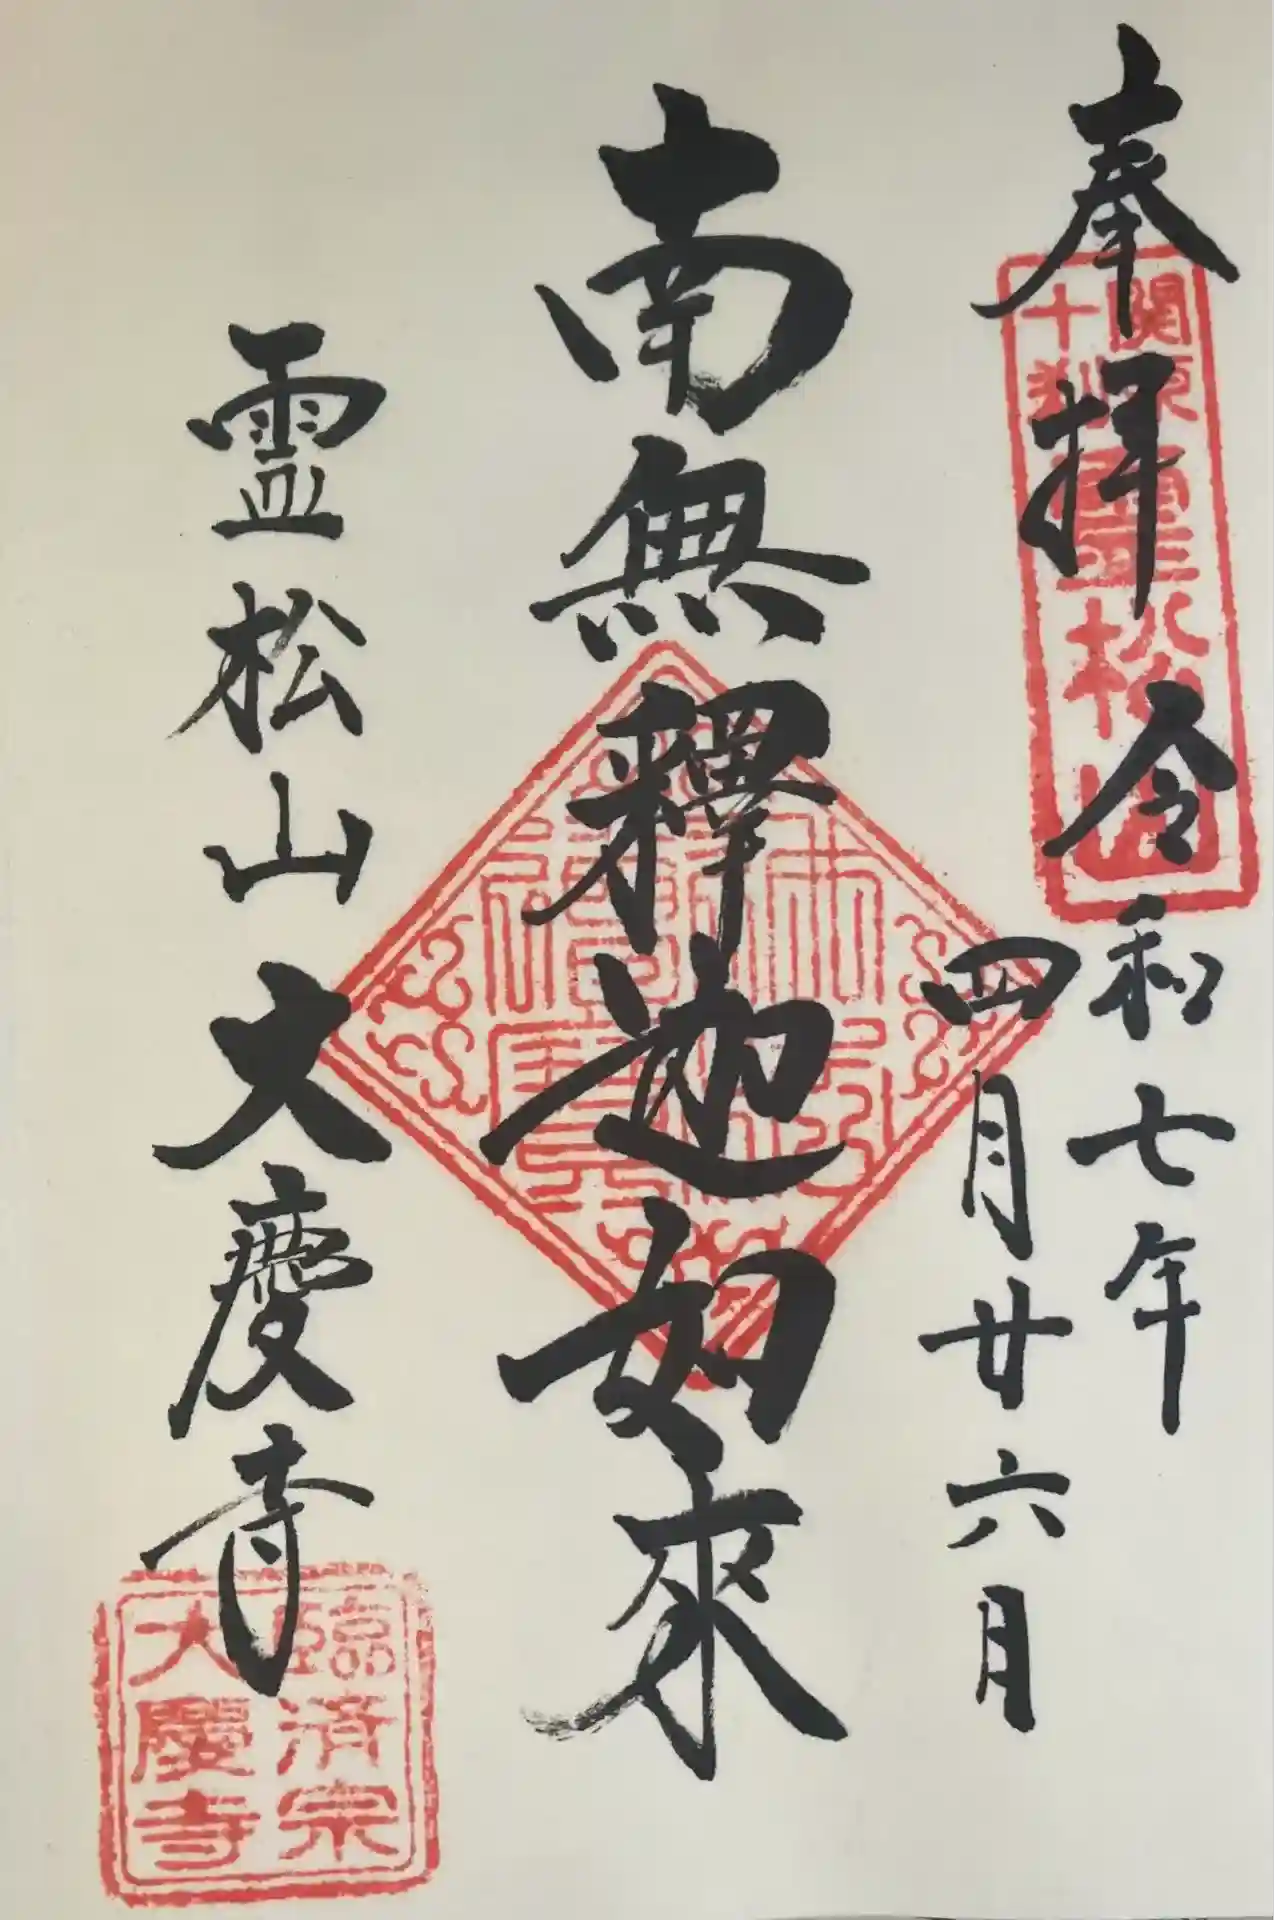 奉拝
関東
十刹
霊松山
令和七年
四月廿六月
南無釋迦如來
霊松山大慶寺
臨済宗
大慶寺